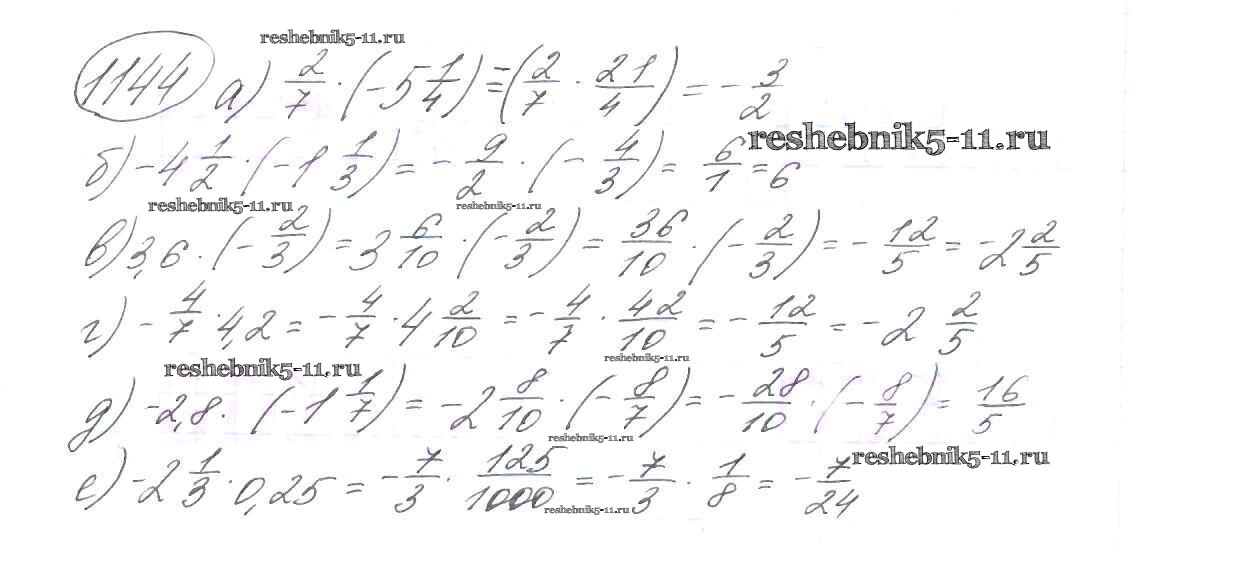 reshebnik5-11.ru
1144 а) 2/7 · (-5 1/4) = -(2/7 · 21/4) = -3/2
reshebnik5-11.ru
б) -4 1/2 · (-1 1/3) = -9/2 · (-4/3) = 6/1 = 6
reshebnik5-11.ru reshebnik5-11.ru
в) 3,6 · (-2/3) = 3 6/10 · (-2/3) = 36/10 · (-2/3) = -12/5 = -2 2/5
г) -4/7 · 4,2 = -4/7 · 4 2/10 = -4/7 · 42/10 = -12/5 = -2 2/5
reshebnik5-11.ru
reshebnik5-11.ru
д) -2,8 · (-1 1/7) = -2 8/10 · (-8/7) = -28/10 · (-8/7) = 16/5
reshebnik5-11.ru
reshebnik5-11.ru
е) -2 1/3 · 0,25 = -7/3 · 125/1000 = -7/3 · 1/8 = -7/24
reshebnik5-11.ru